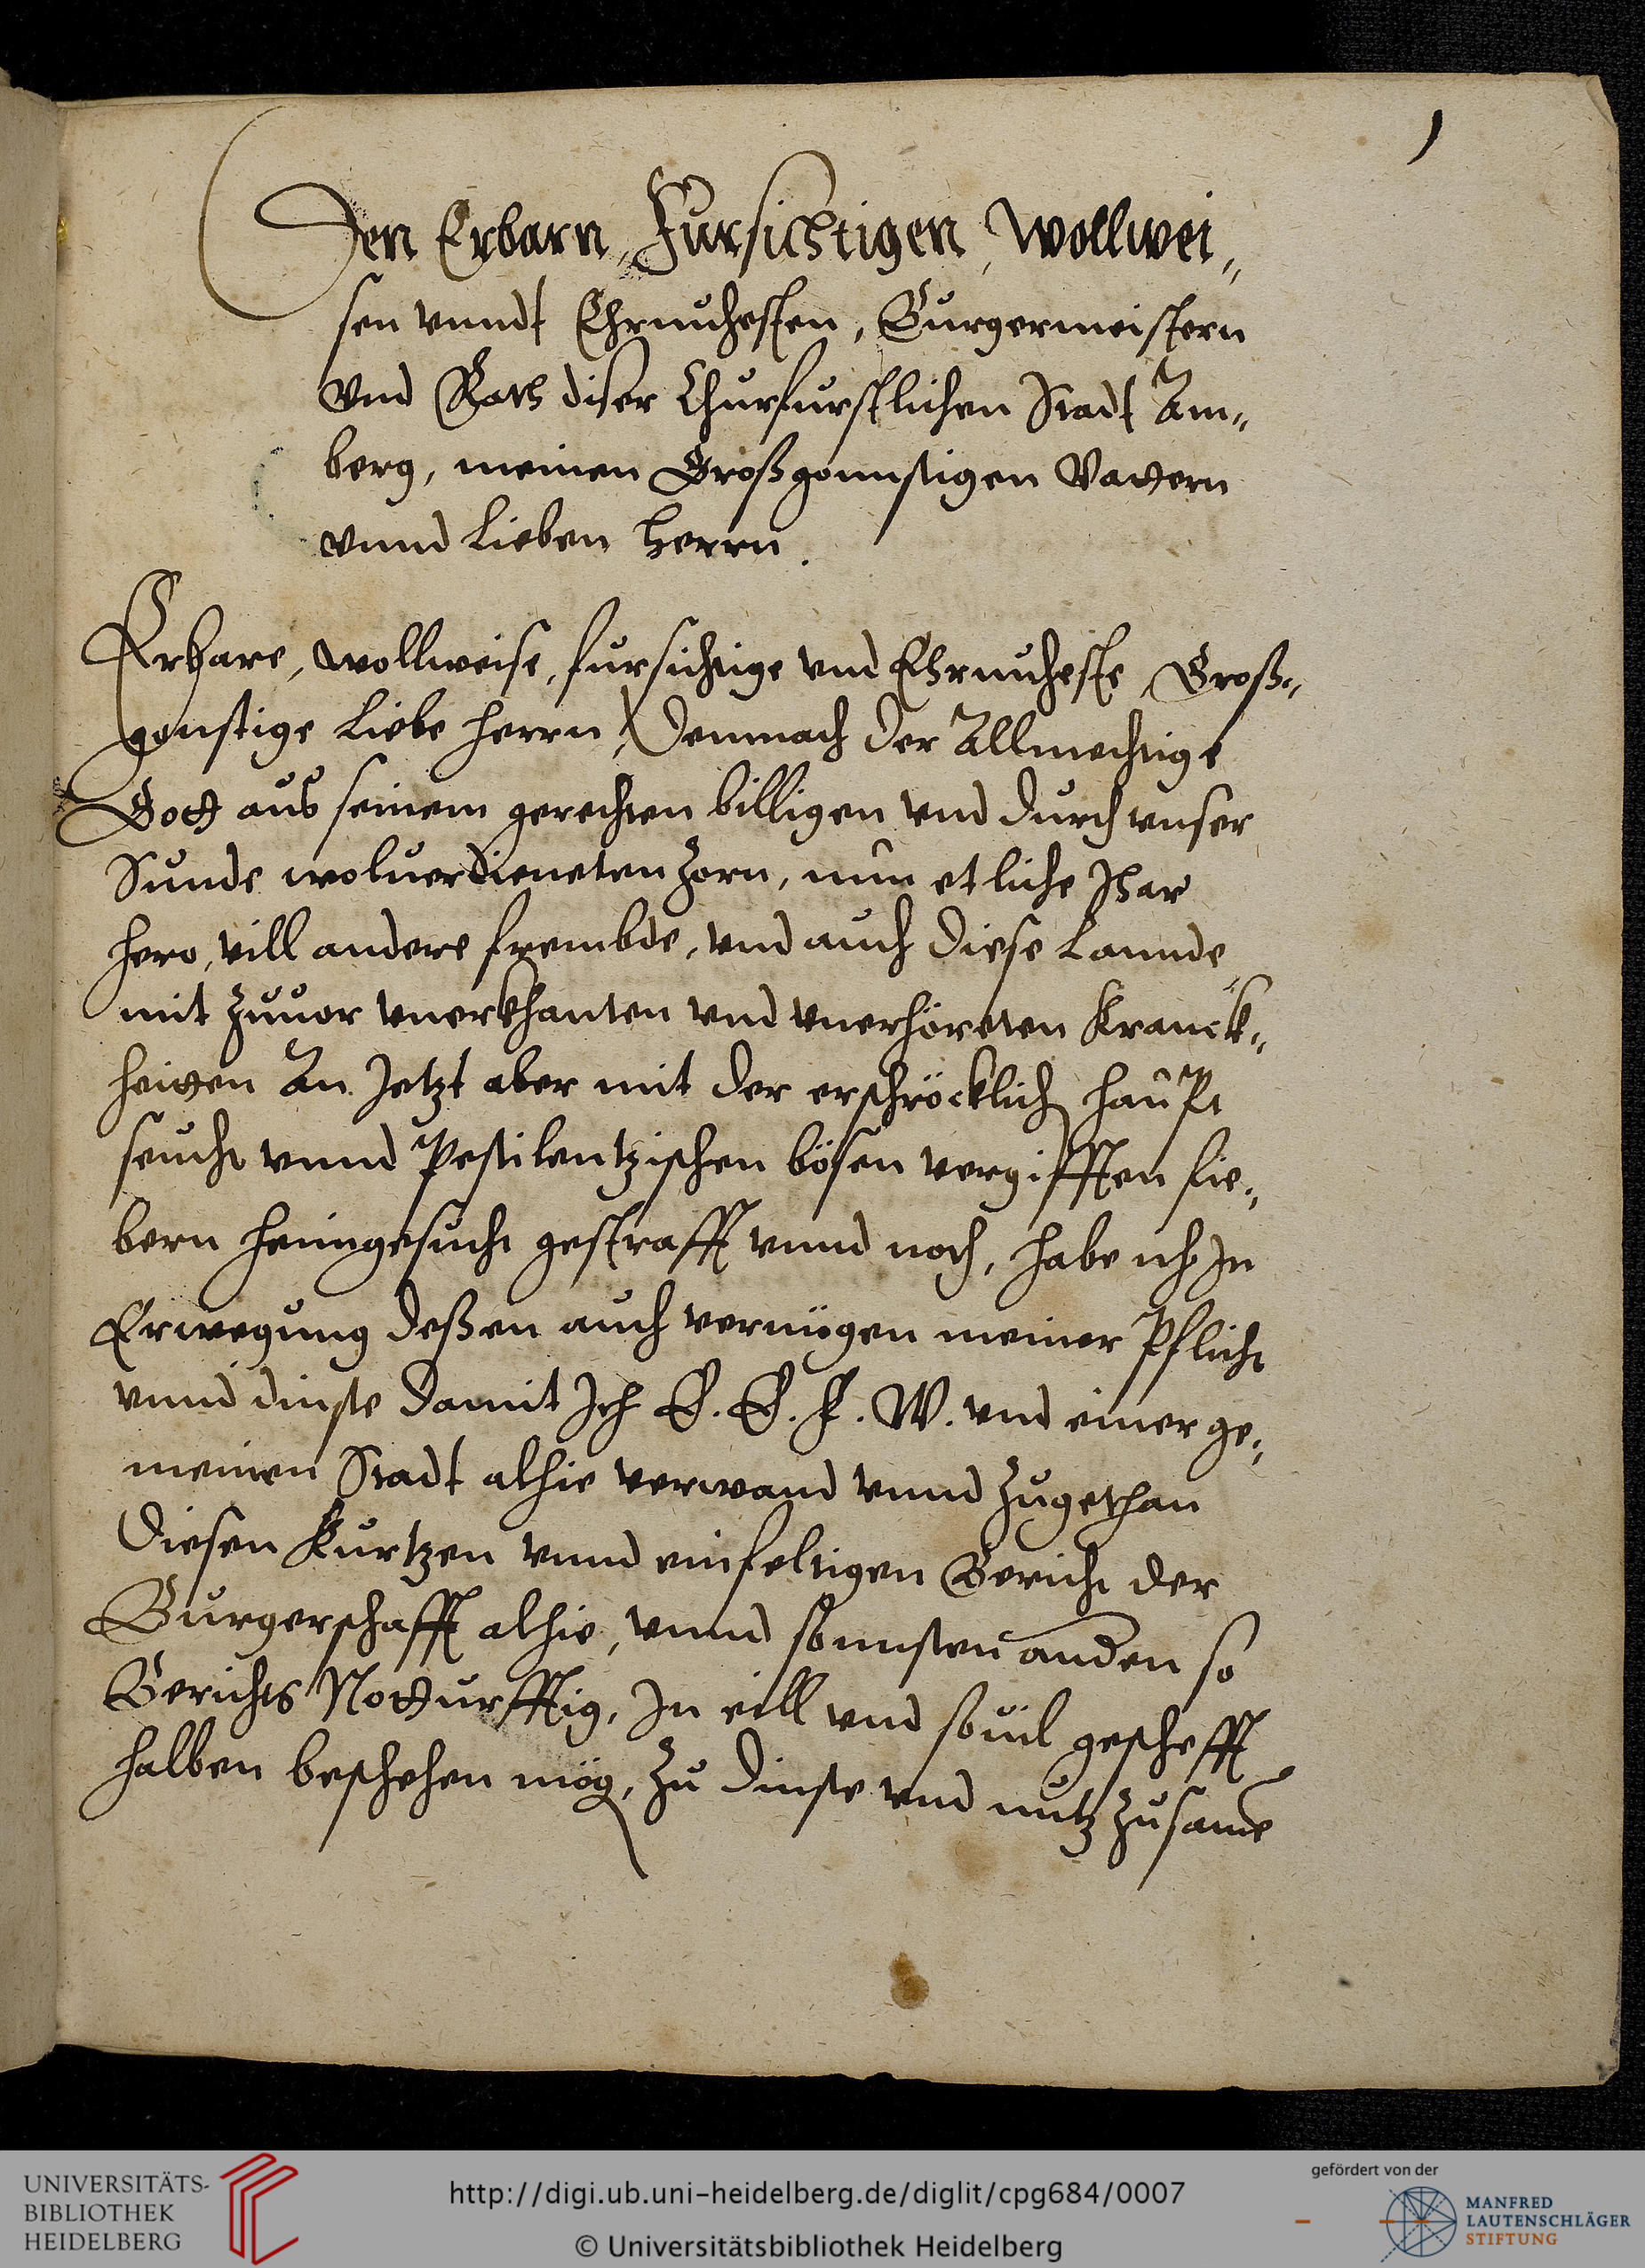 1
Den Erbarn, Fursichtigen, Wollwei„
sen vnndt Ehrnuhesten, Burgermeistern
Vnd Rath diser Churfurstlichen Stadt Am„
berg, meinen Großgonnstigen Vattern
vnnd Lieben Herrn.
Erbare, wollweise, fursichtige vnd Ehrnuheste, Groß„
gonstige Liebe Herrn, Demnach der Allmechtige
Gott aus seinem gerechten billigen vnd durch vnser
Sunde woluerdieneten Zorn, nun etliche Jhar
hero, vill andere frembde, vnd auch diese Lannde
mit Zuuor vnerkhanten vnd vnerhöreten Kranck„
heitten An Jetzt aber mit der erschröcklich haupt
seucht vnnd Pestilentzischen bösen vergifften fie„
bern heimgesucht gestrafft vnnd noch, habe ich Jn
Erwegung deßen auch vermögen meiner Pflicht
vnnd dinste damit Jch E. E. F. W. vnd einer ge„
meinen Stadt alhie verwand vnnd Zugethan
Diesen Kurtzen vnnd einfeltigen Bericht der
Burgerschafft alhie, vnnd sonnsten andern so
Berichts Notturfftig, Jn eill vnd souil geschefft
halben beschehen mög, Zu dinste vnd nutz Zusame
UNIVERSITÄTS-
BIBLIOTHEK
HEIDELBERG
http://digi.ub.uni-heidelberg.de/diglit/cpg684/0007
© Universitätsbibliothek Heidelberg
gefördert von der
MANFRED
LAUTENSCHLÄGER
STIFTUNG